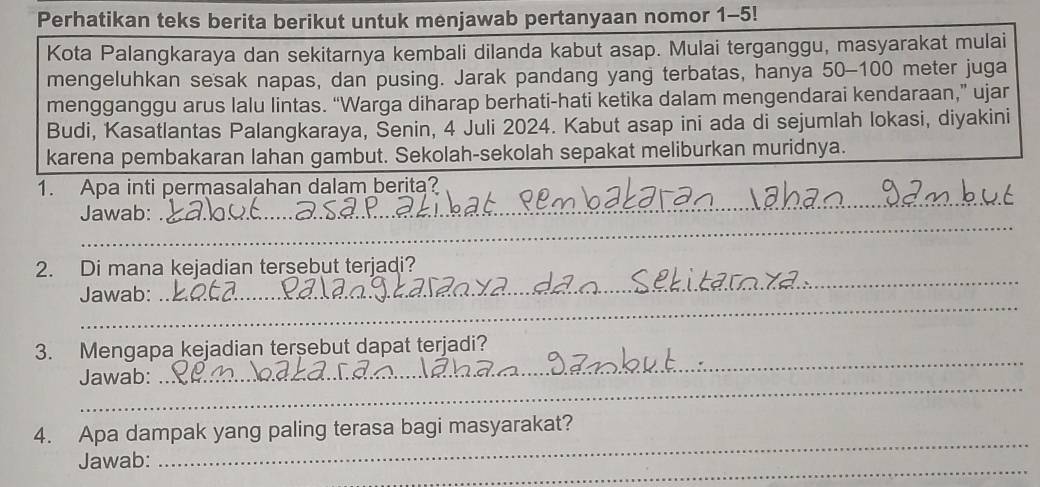 Perhatikan teks berita berikut untuk menjawab pertanyaan nomor 1–5!
Kota Palangkaraya dan sekitarnya kembali dilanda kabut asap. Mulai terganggu, masyarakat mulai
mengeluhkan sesak napas, dan pusing. Jarak pandang yang terbatas, hanya 50–100 meter juga
mengganggu arus lalu lintas. “Warga diharap berhati-hati ketika dalam mengendarai kendaraan,” ujar
Budi, Kasatlantas Palangkaraya, Senin, 4 Juli 2024. Kabut asap ini ada di sejumlah lokasi, diyakini
karena pembakaran lahan gambut. Sekolah-sekolah sepakat meliburkan muridnya.
1. Apa inti permasalahan dalam berita?
Jawab: kabut asap akibat pembakaran lahan gambut
2. Di mana kejadian tersebut terjadi?
Jawab: kota Palangkaranya dan Sekitarnya.
3. Mengapa kejadian tersebut dapat terjadi?
Jawab: Pembakaran lahan gambut.
4. Apa dampak yang paling terasa bagi masyarakat?
Jawab: